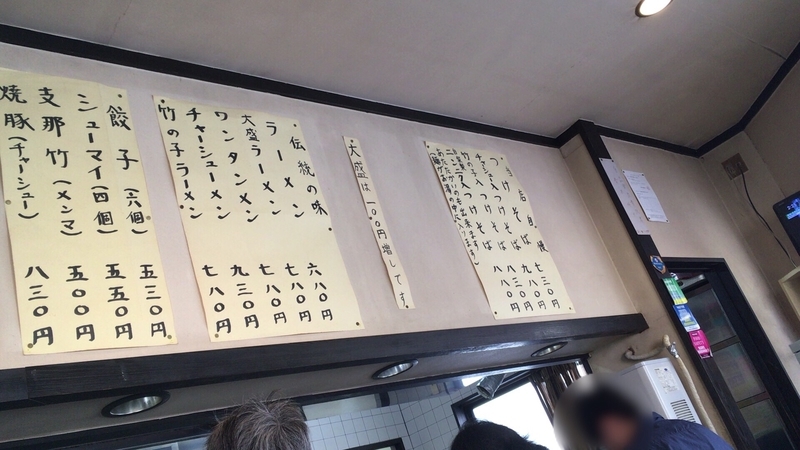 当店自慢
つけそば 七三〇円
チャシュー入つけそば 九八〇円
竹の子入つけそば 八三〇円
入つけそば 八八〇円
大盛は一〇〇円増しです
伝統の味
ラーメン 六八〇円
大盛ラーメン 七八〇円
ワンタンメン 七八〇円
チャーシューメン 九三〇円
竹の子ラーメン 七八〇円
餃子(六個) 五三〇円
シューマイ(四個) 五五〇円
支那竹(メンマ) 五〇〇円
焼豚(チャーシュー) 八三〇円